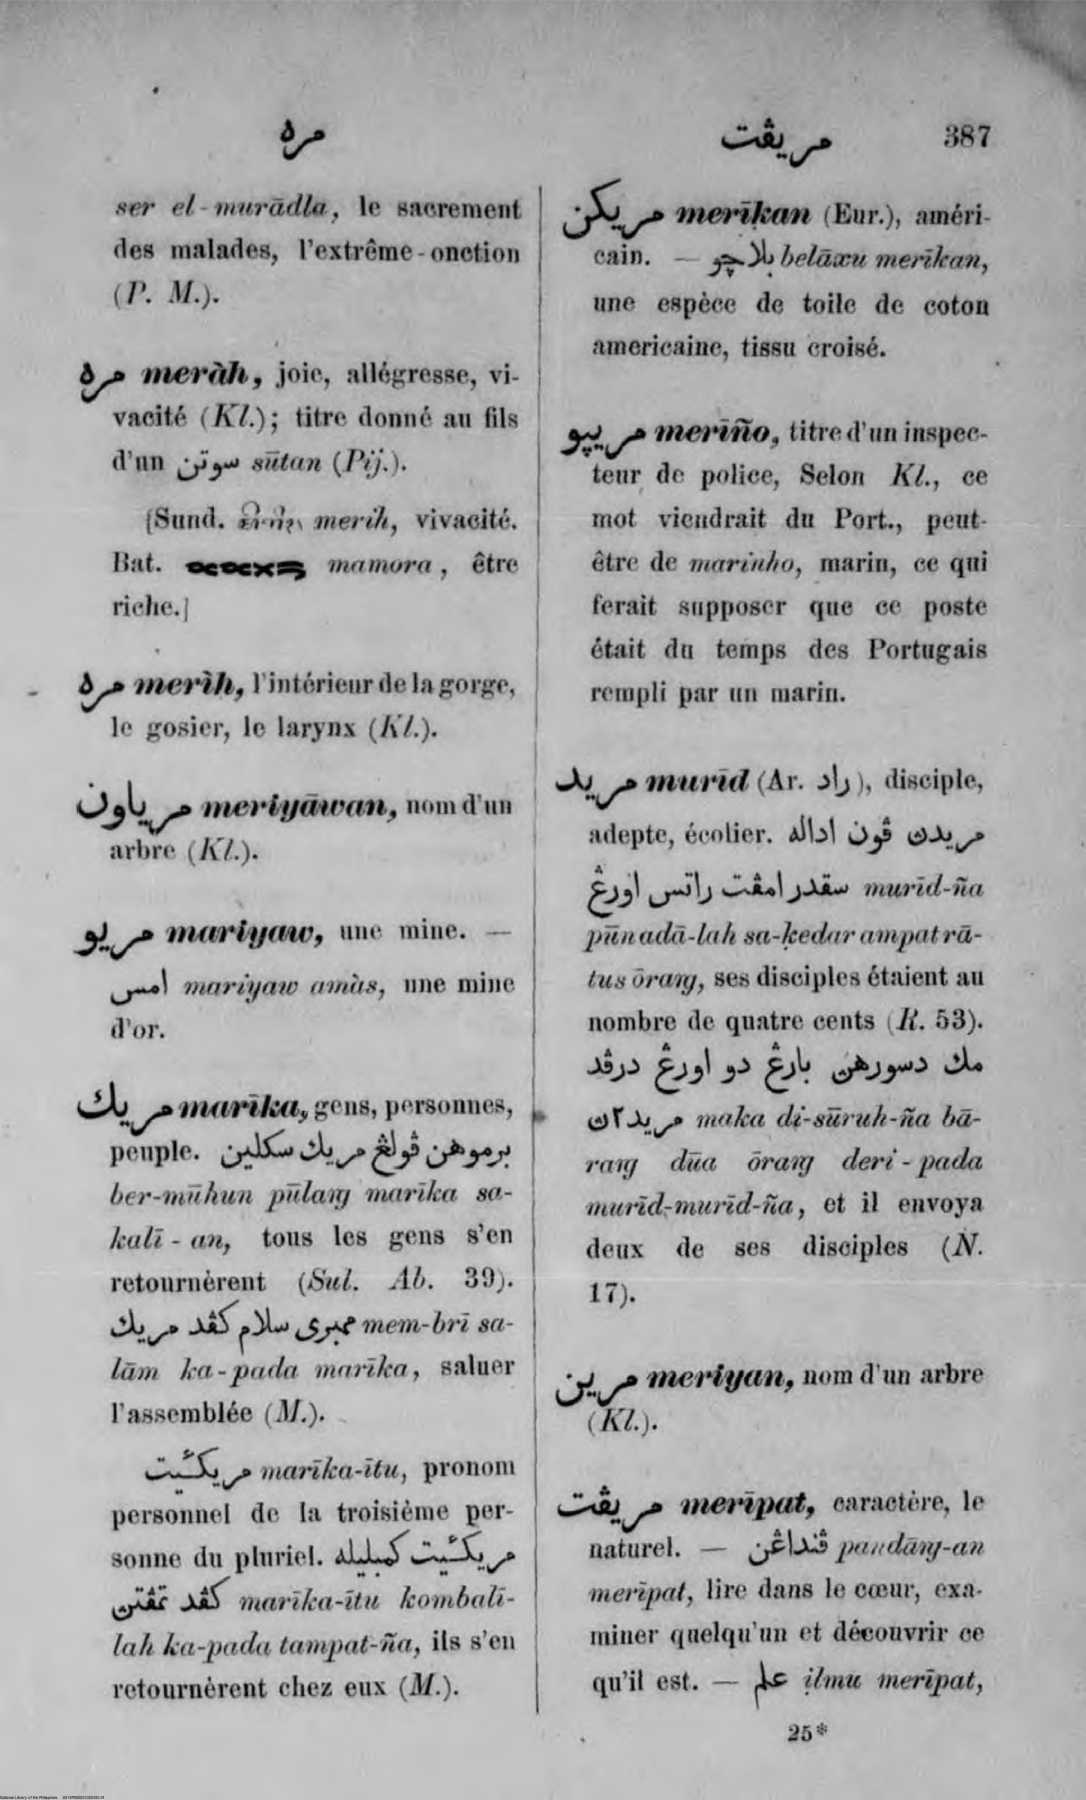 مره
مريڤت 387
ser el-murādla, le sacrement
des malades, l'extrême-onction
(P. M.).
مره meràh, joie, allégresse, vi-
vacité (Kl.); titre donné au fils
d'un سوتن sūtan (Pij.).
[Sund. merih, vivacité.
Bat. mamora, être
riche.]
مره merìh, l'intérieur de la gorge,
le gosier, le larynx (Kl.).
مرياون meriyāwan, nom d'un
arbre (Kl.).
مريو mariyaw, une mine. —
امس mariyaw amàs, une mine
d'or.
مريك marīka, gens, personnes,
peuple. برموهن ڤولڠ مريك سكلين
ber-mūhun pūlaŋ marīka sa-
kalī-an, tous les gens s'en
retournèrent (Sul. Ab. 39).
ممبرى سلام كڤد مريك mem-brī sa-
lām ka-pada marīka, saluer
l'assemblée (M.).
مريكئيت marīka-ītu, pronom
personnel de la troisième per-
sonne du pluriel. مريكئيت كمبليله
كڤد تمڤتن marīka-ītu kombalī-
lah ka-pada tampat-ña, ils s'en
retournèrent chez eux (M.).
مريكن merīkan (Eur.), améri-
cain. — بلاچو belāxu merīkan,
une espèce de toile de coton
americaine, tissu croisé.
مريپو merīño, titre d'un inspec-
teur de police, Selon Kl., ce
mot viendrait du Port., peut-
être de marinho, marin, ce qui
ferait supposer que ce poste
était du temps des Portugais
rempli par un marin.
مريد murīd (Ar. راد), disciple,
adepte, écolier. مريدن ڤون اداله
سقدر امڤت راتس اورڠ murīd-ña
pūn adā-lah sa-ḳedar ampat rā-
tus ōraŋ, ses disciples étaient au
nombre de quatre cents (R. 53).
مك دسورهن بارڠ دو اورڠ درڤد
مريد٢ن maka di-sūruh-ña bā-
raŋ dūa ōraŋ deri-pada
murīd-murīd-ña, et il envoya
deux de ses disciples (N.
17).
مرين meriyan, nom d'un arbre
(Kl.).
مريڤت merīpat, caractère, le
naturel. — ڤنداڠن pandāŋ-an
merīpat, lire dans le cœur, exa-
miner quelqu'un et découvrir ce
qu'il est. — علم ịlmu merīpat,
25*